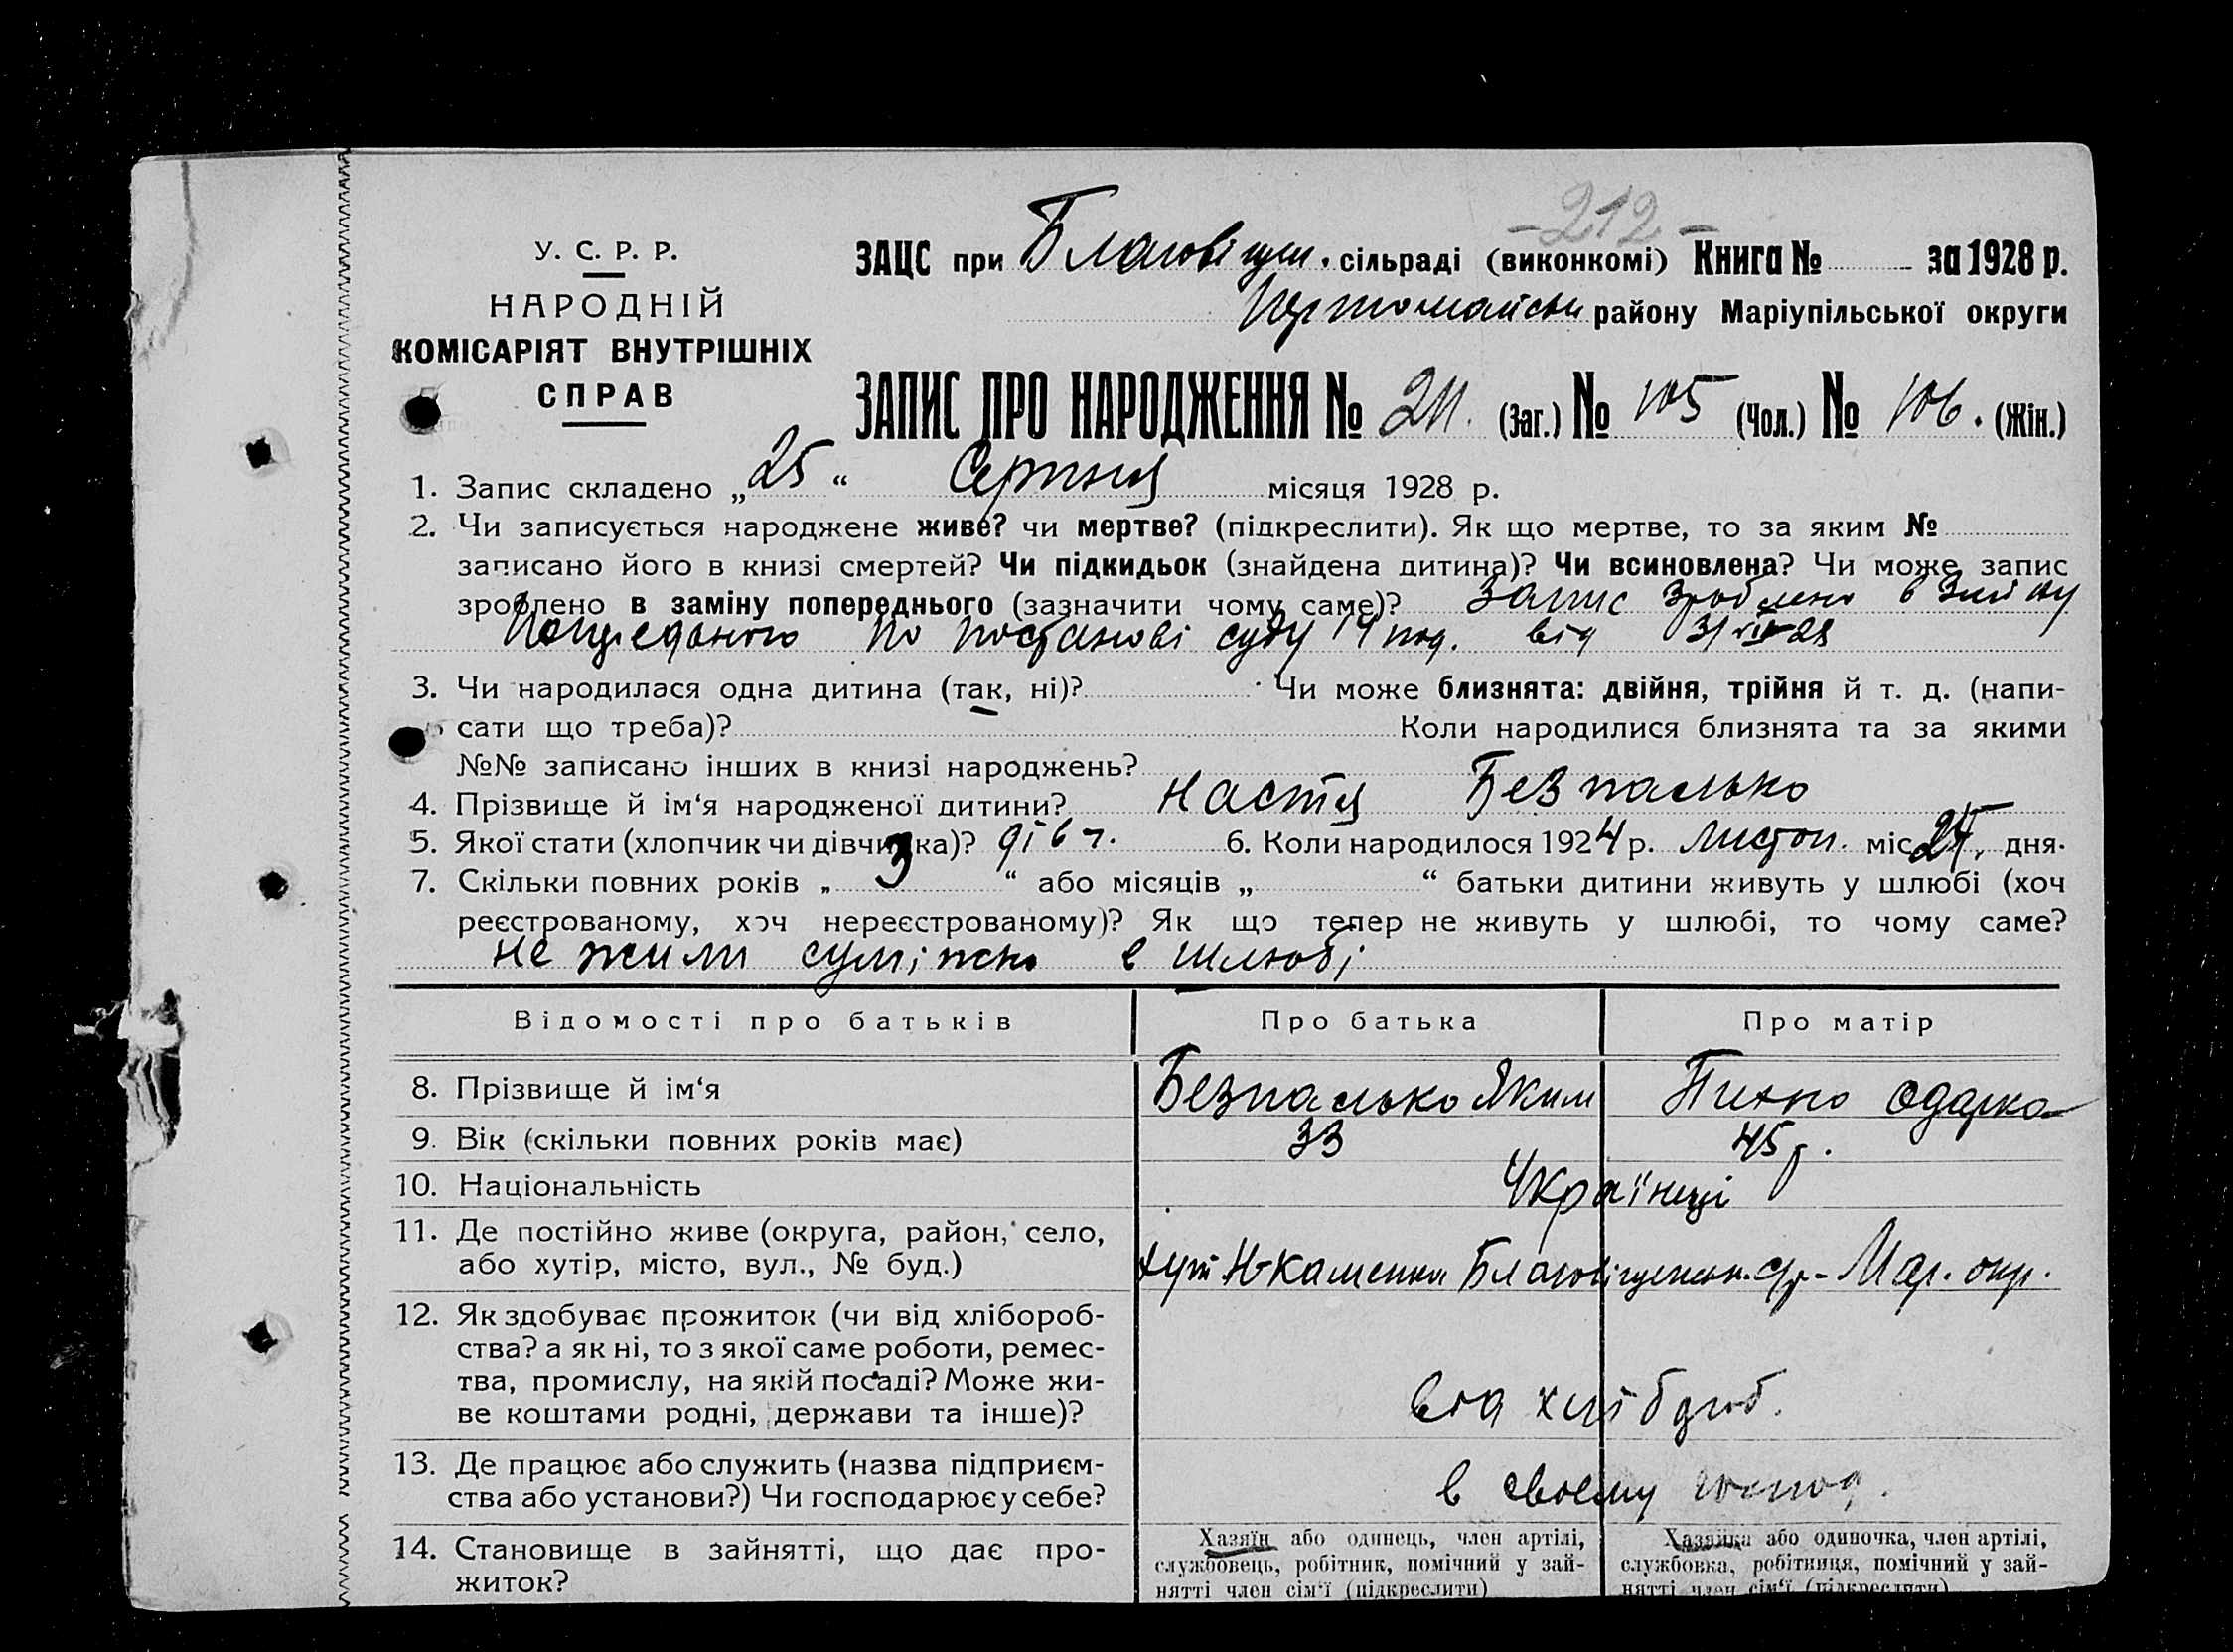 - 212 -
У. С. Р. Р.
НАРОДНІЙ
КОМІСАРІЯТ ВНУТРІШНІХ
СПРАВ
ЗАЦС при Благовіщен. сільраді (виконкомі) Книга № за 1928 р.
району Маріупільської округи
ЗАПИС ПРО НАРОДЖЕННЯ № 211. (Заг.) № 105 (Чол.) № 106. (Жін.)
1. Запис складено „25“ Серпня місяця 1928 р.
2. Чи записується народжене живе? чи мертве? (підкреслити). Як що мертве, то за яким №
записано його в книзі смертей? Чи підкидьок (знайдена дитина)? Чи всиновлена? Чи може запис
зроблено в заміну попереднього (зазначити чому саме)? Запис зроблено в заміну
по постанові суду від 31 VII 28
3. Чи народилася одна дитина (так, ні)? Чи може близнята: двійня, трійня й т. д. (напи-
сати що треба)? Коли народилися близнята та за якими
№№ записано інших в книзі народжень?
4. Прізвище й ім‘я народженої дитини? Настя Безпалько
5. Якої стати (хлопчик чи дівчинка)? дівч. 6. Коли народилося 1924 р. Листоп. міс. дня.
7. Скільки повних років „ 3 “ або місяців „ “ батьки дитини живуть у шлюбі (хоч
реєстрованому, хоч нереєстрованому)? Як що тепер не живуть у шлюбі, то чому саме?
не жили суміжно в шлюбі
Відомості про батьків Про батька Про матір
8. Прізвище й ім‘я Безпалько Яким Пихно Одарка
9. Вік (скільки повних років має) 33 45 р.
10. Національність Українці
11. Де постійно живе (округа, район, село,
або хутір, місто, вул., № буд.) хут Н-Каменка Благовіщенск. с/р - Мар. окр.
12. Як здобуває прожиток (чи від хлібороб-
ства? а як ні, то з якої саме роботи, ремес-
тва, промислу, на якій посаді? Може жи-
ве коштами родні, держави та інше)? від хлібороб.
13. Де працює або служить (назва підприєм-
ства або установи?) Чи господарює у себе? в своєму господ.
14. Становище в зайнятті, що дає про-
житок?
Хазяїн або одинець, член артілі,
службовець, робітник, помічний у зай-
нятті член сім‘ї (підкреслити)
Хазяйка або одиночка, член артілі,
службовка, робітниця, помічний у зай-
нятті член сім‘ї (підкреслити)